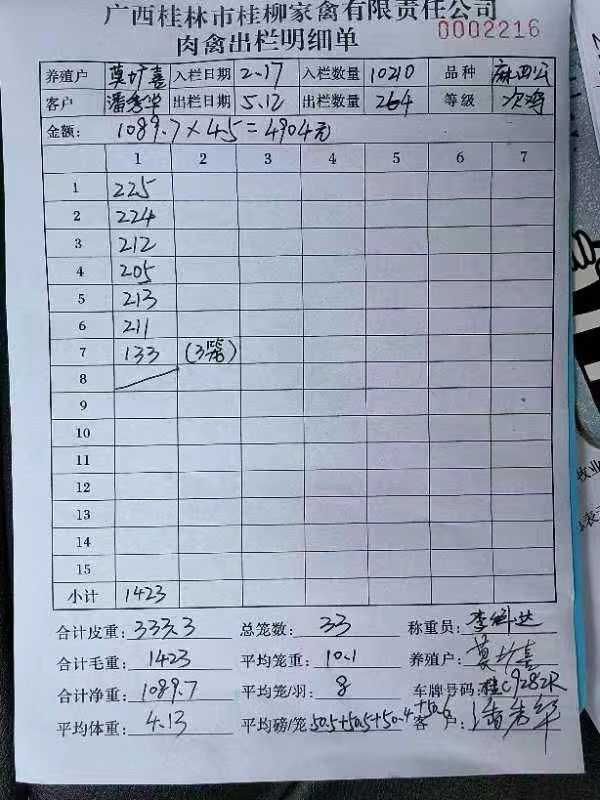 广西桂林市桂柳家禽有限责任公司
肉禽出栏明细单
0002216
养殖户 莫 喜 入栏日期 2.17 入栏数量 10210 品种 麻四公
客户 潘秀华 出栏日期 5.12 出栏数量 264 等级 次鸡
金额: 1089.7×4.5=4904元
1 2 3 4 5 6 7
1 225
2 224
3 212
4 205
5 213
6 211
7 133 (3笼)
8
9
10
11
12
13
14
15
小计 1423
合计皮重: 333.3 总笼数: 33 称重员: 李 达
合计毛重: 1423 平均笼重: 10.1 养殖户: 莫 喜
合计净重: 1089.7 平均笼/羽: 8 车牌号码: 桂C9282R
平均体重: 4.13 平均磅/笼: 50.5+50.5+50.4 客 户: 潘秀华